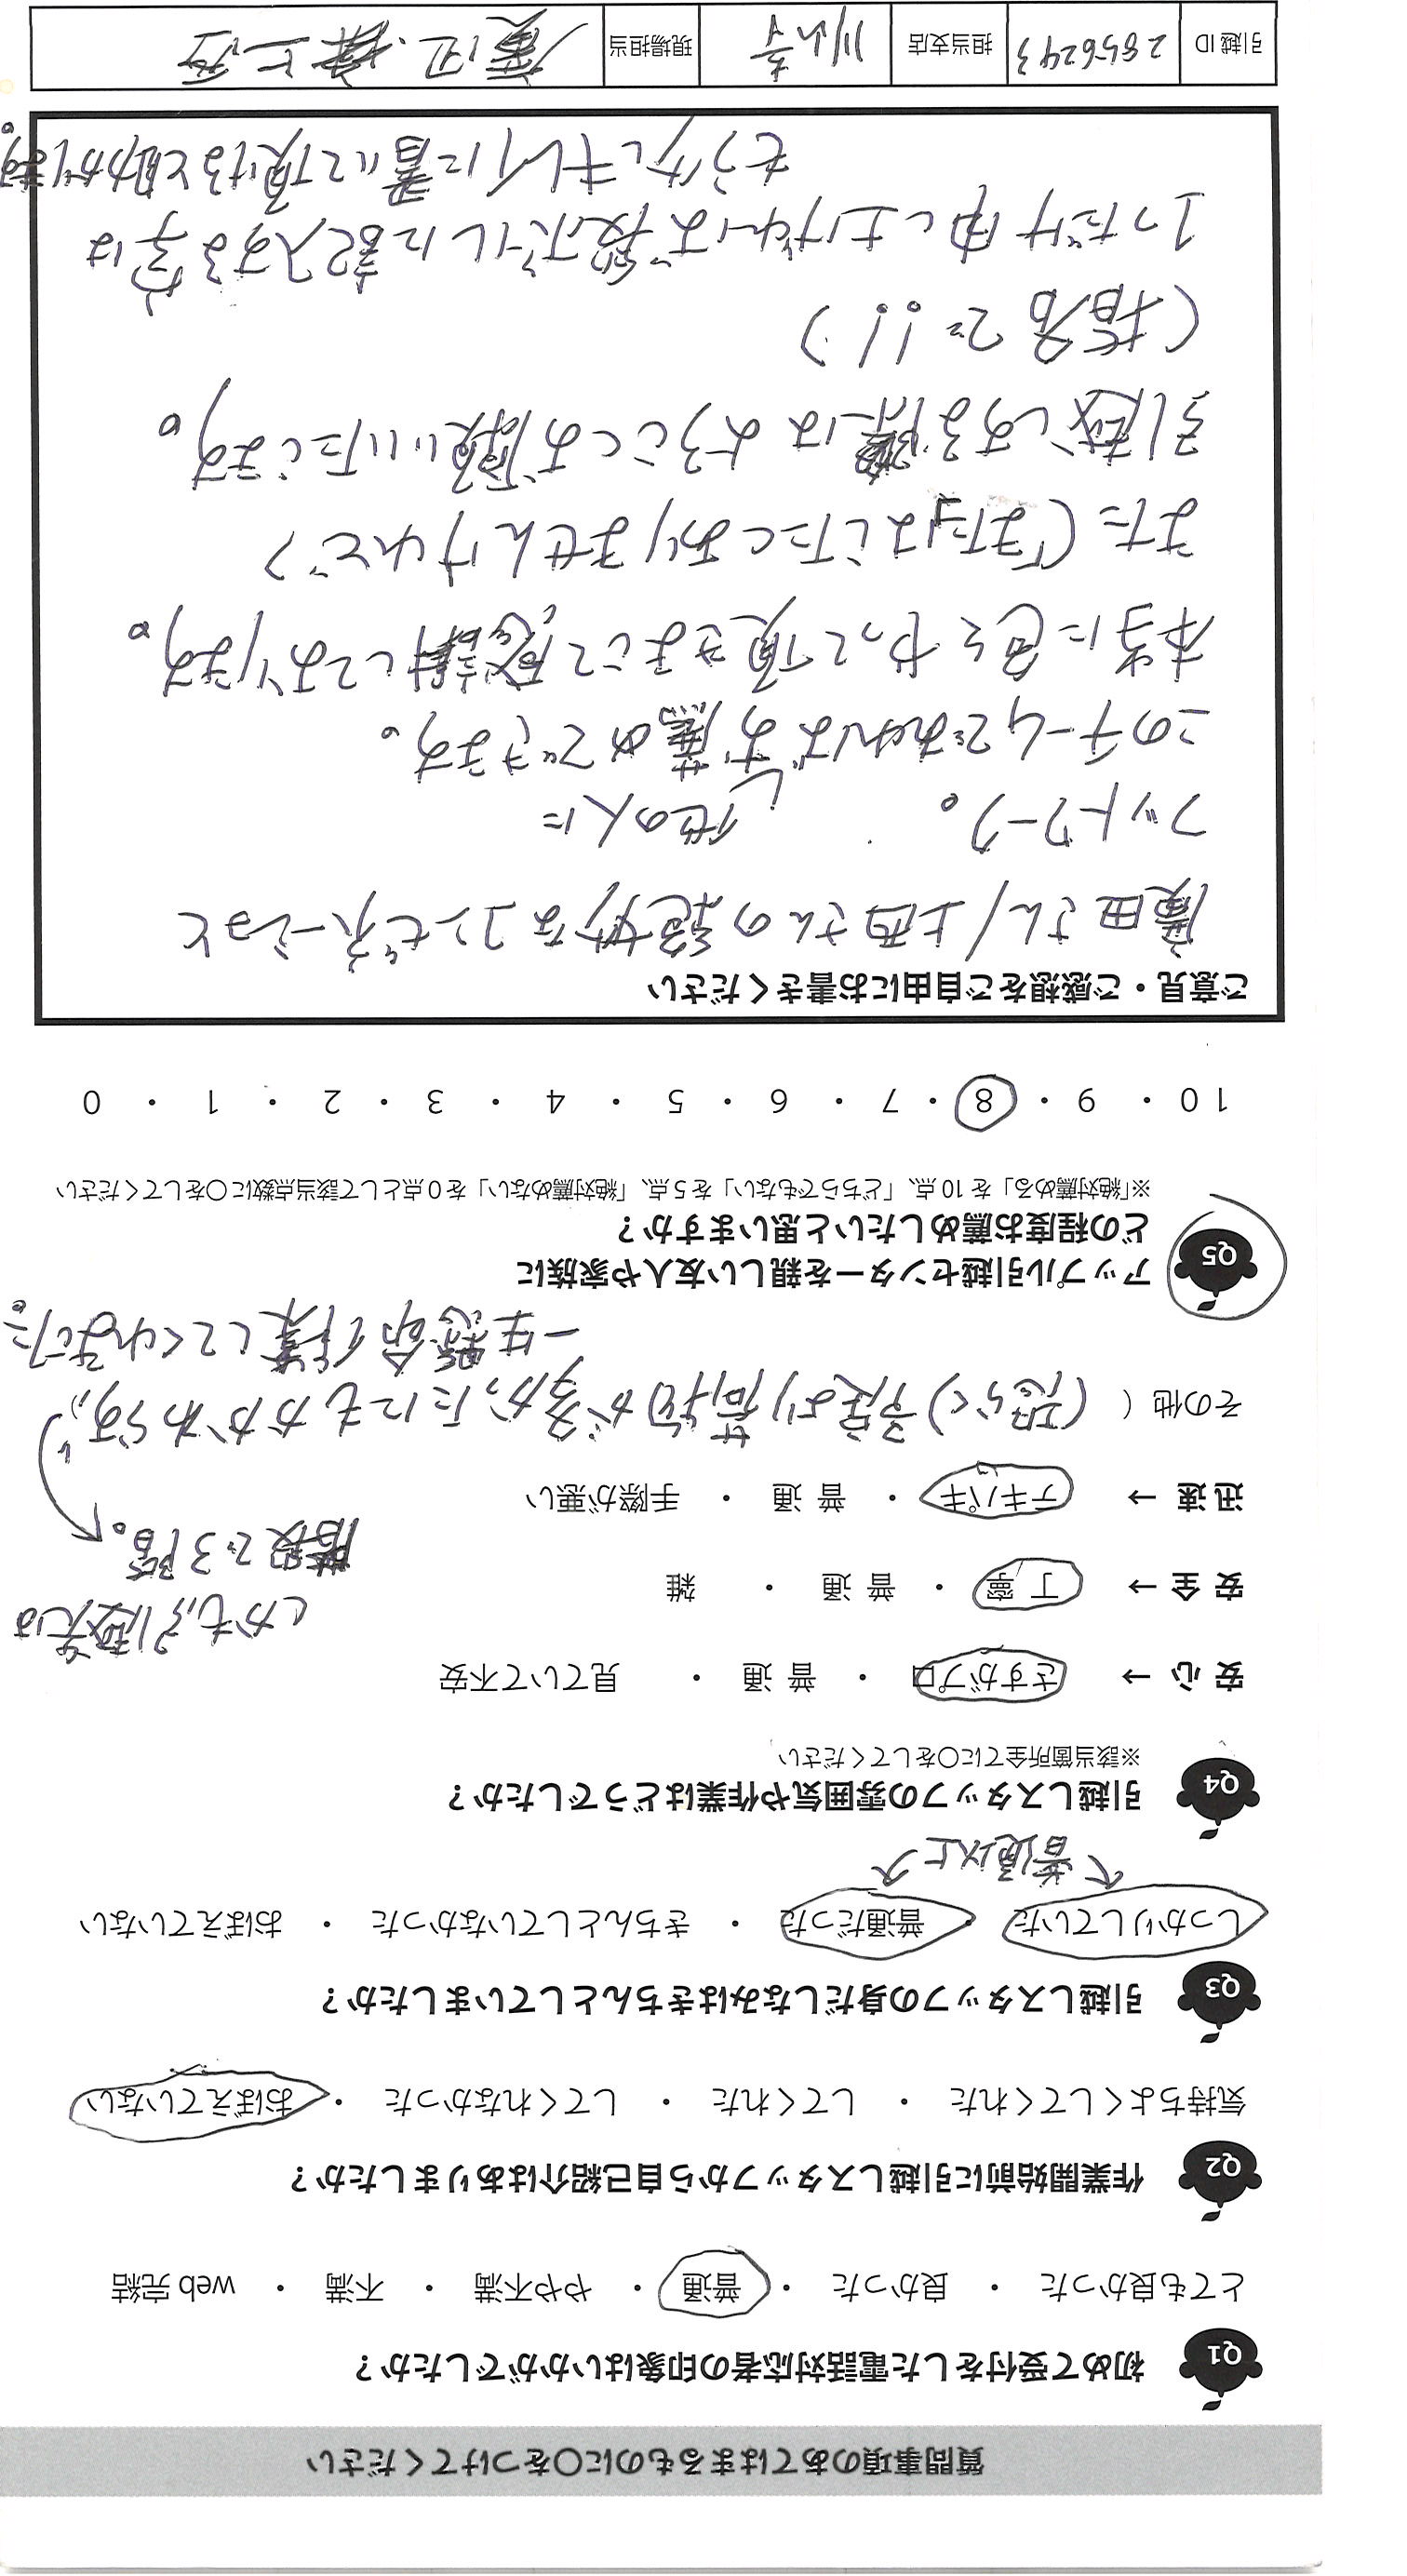 質問事項のあてはまるものに○をつけてください
Q1 初めて受付をした電話対応者の印象はいかがでしたか？
とても良かった ・ 良かった ・ 普通 ・ やや不満 ・ 不満 ・ web 完結
Q2 作業開始前に引越しスタッフから自己紹介はありましたか？
気持ちよくしてくれた ・ してくれた ・ してくれなかった ・ おぼえていない
Q3 引越しスタッフの身だしなみはきちんとしていましたか？
しっかりしていた ・ 普通だった ・ きちんとしていなかった ・ おぼえていない
普通以上
Q4 引越しスタッフの雰囲気や作業はどうでしたか？
※該当箇所全てに○をしてください
安心 → さすがプロ ・ 普通 ・ 見ていて不安
安全 → 丁寧 ・ 普通 ・ 雑
しかも、引越先は
階段で3階。
迅速 → テキパキ ・ 普通 ・ 手際が悪い
その他 （ (恐らく)予定より荷物が多かったにもかかわらず、
一生懸命作業してくれました。
Q5 アップル引越センターを親しい友人や家族に
どの程度お薦めしたいと思いますか？
※「絶対薦める」を 10 点、「どちらでもない」を 5 点、「絶対薦めない」を 0 点として該当点数に○をしてください
10 ・ 9 ・ 8 ・ 7 ・ 6 ・ 5 ・ 4 ・ 3 ・ 2 ・ 1 ・ 0
ご意見・ご感想をご自由にお書きください
廣田さん/上西さんの絶妙なコンビネーションと
フットワーク。 他の人に
このチームであればお薦めできます。
本当に色々やって頂きまして感謝しております。
また(「また」はしたくありませんけれど)
引越しする際はようこそお願いいたします。
(指名で!!)
1つだけ申し上げれば段ボールに記入する字は
もう少しキレイに書いて頂けると助かります。
引越ID 2856243 担当支店 現場担当